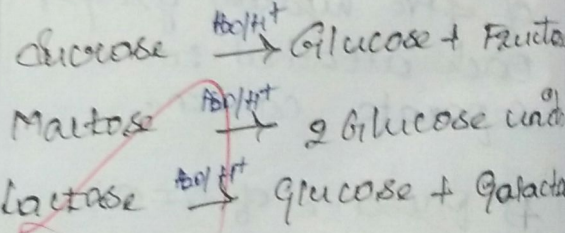 Sucrose H2O/H+ → Glucose + Fructo
Maltose H2O/H+ → 2 Glucose unit
Lactose H2O/H+ → glucose + galacto